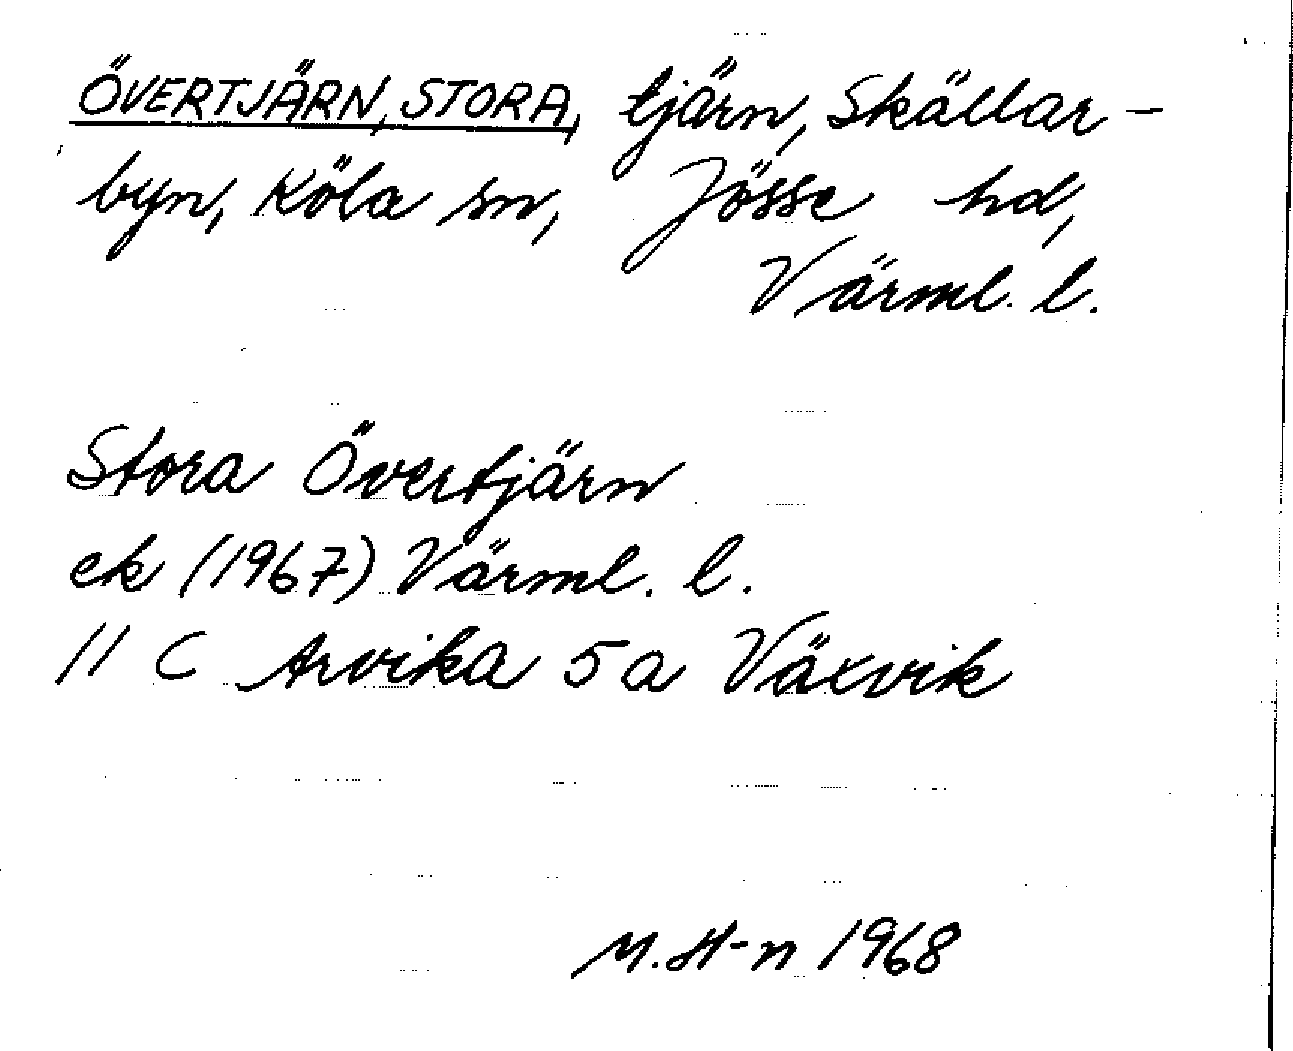 ÖVERTJÄRN, STORA, tjärn, Skällar-
byn, Köla sn, Jösse hd,
Värml. l.
Stora Övertjärn
ek (1967) Värml. l.
11 C Arvika 5a Växvik
M.H-n 1968